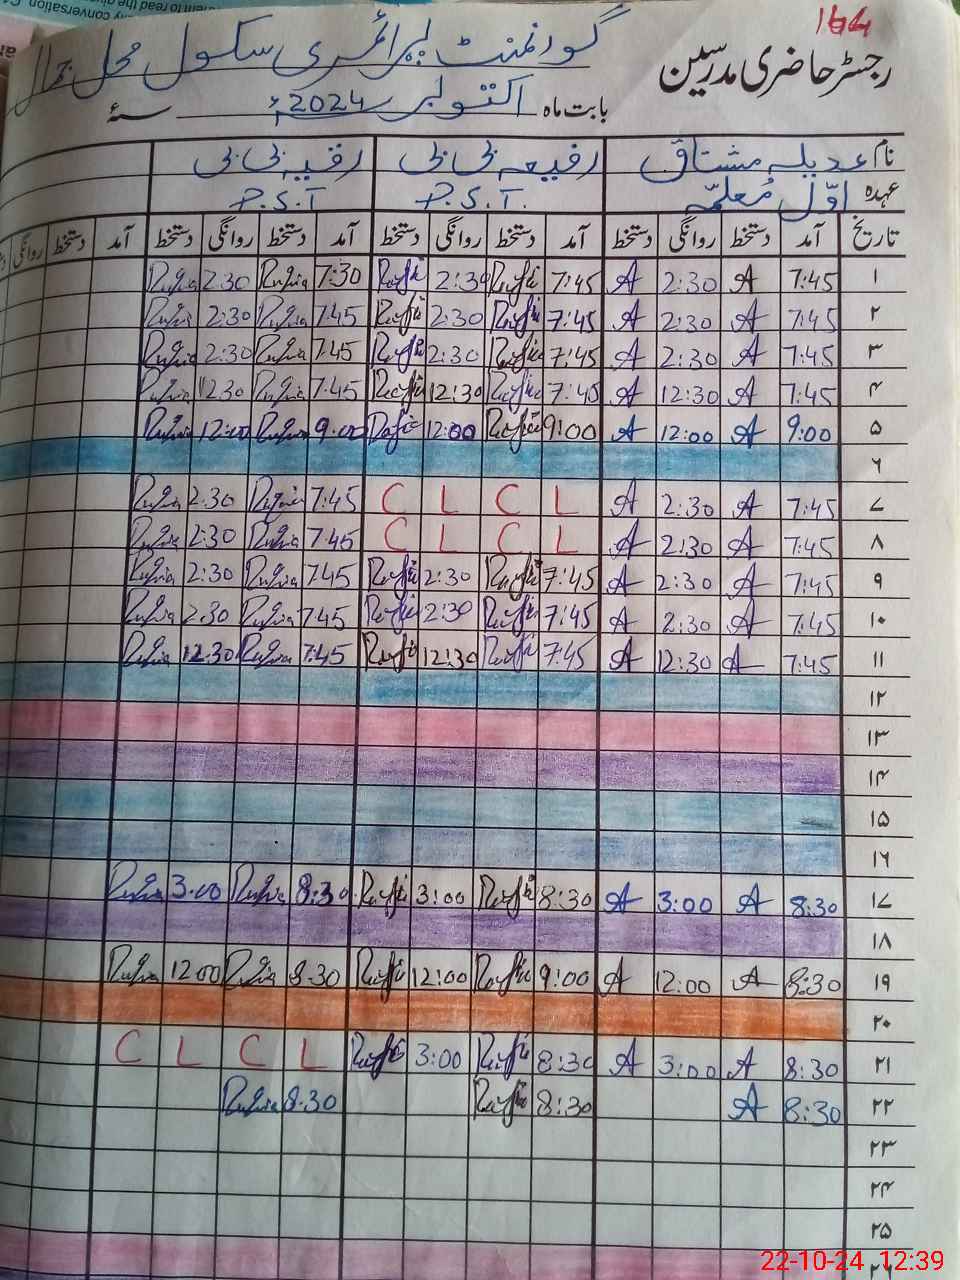 164
گورنمنٹ پرائمری سکول محل
رجسٹر حاضری مدرسین
بابت ماہ اکتوبر 2024ء سنۂ
نام عدیلہ مشتاق رفیعہ بی بی رقیہ بی بی
عہدہ اوّل مُعلمّہ P.S.T. P.S.T
تاریخ آمد دستخط روانگی دستخط آمد دستخط روانگی دستخط آمد دستخط روانگی دستخط آمد دستخط روانگی
۱ 7:45 A 2:30 A 7:45 Rafi 2:30 Rafi 7:30 Ruqia 2:30 Ruqia
۲ 7:45 A 2:30 A 7:45 Rafi 2:30 Rafi 7:45 Ruqia 2:30 Ruqia
۳ 7:45 A 2:30 A 7:45 Rafi 2:30 Rafi 7:45 Ruqia 2:30 Ruqia
۴ 7:45 A 12:30 A 7:45 Rafi 12:30 Rafi 7:45 Ruqia 12:30 Ruqia
۵ 9:00 A 12:00 A 9:00 Rafi 12:00 Rafi 9:00 Ruqia 12:00 Ruqia
۶
۷ 7:45 A 2:30 A L C L C 7:45 Ruqia 2:30 Ruqia
۸ 7:45 A 2:30 A L C L C 7:45 Ruqia 2:30 Ruqia
۹ 7:45 A 2:30 A 7:45 Rafi 2:30 Rafi 7:45 Ruqia 2:30 Ruqia
۱۰ 7:45 A 2:30 A 7:45 Rafi 2:30 Rafi 7:45 Ruqia 2:30 Ruqia
۱۱ 7:45 A 12:30 A 7:45 Rafi 12:30 Rafi 7:45 Ruqia 12.30 Ruqia
۱۲
۱۳
۱۴
۱۵
۱۶
۱۷ 8:30 A 3:00 A 8:30 Rafi 3:00 Rafi 8:30 Ruqia 3:00 Ruqia
۱۸
۱۹ 8:30 A 12:00 A 9:00 Rafi 12:00 Rafi 8:30 Ruqia 12:00 Ruqia
۲۰
۲۱ 8:30 A 3:00 A 8:30 Rafi 3:00 Rafi L C L C
۲۲ 8:30 A 8:30 Rafi 8:30 Ruqia
۲۳
۲۴
۲۵
۲۶
22-10-24 12:39